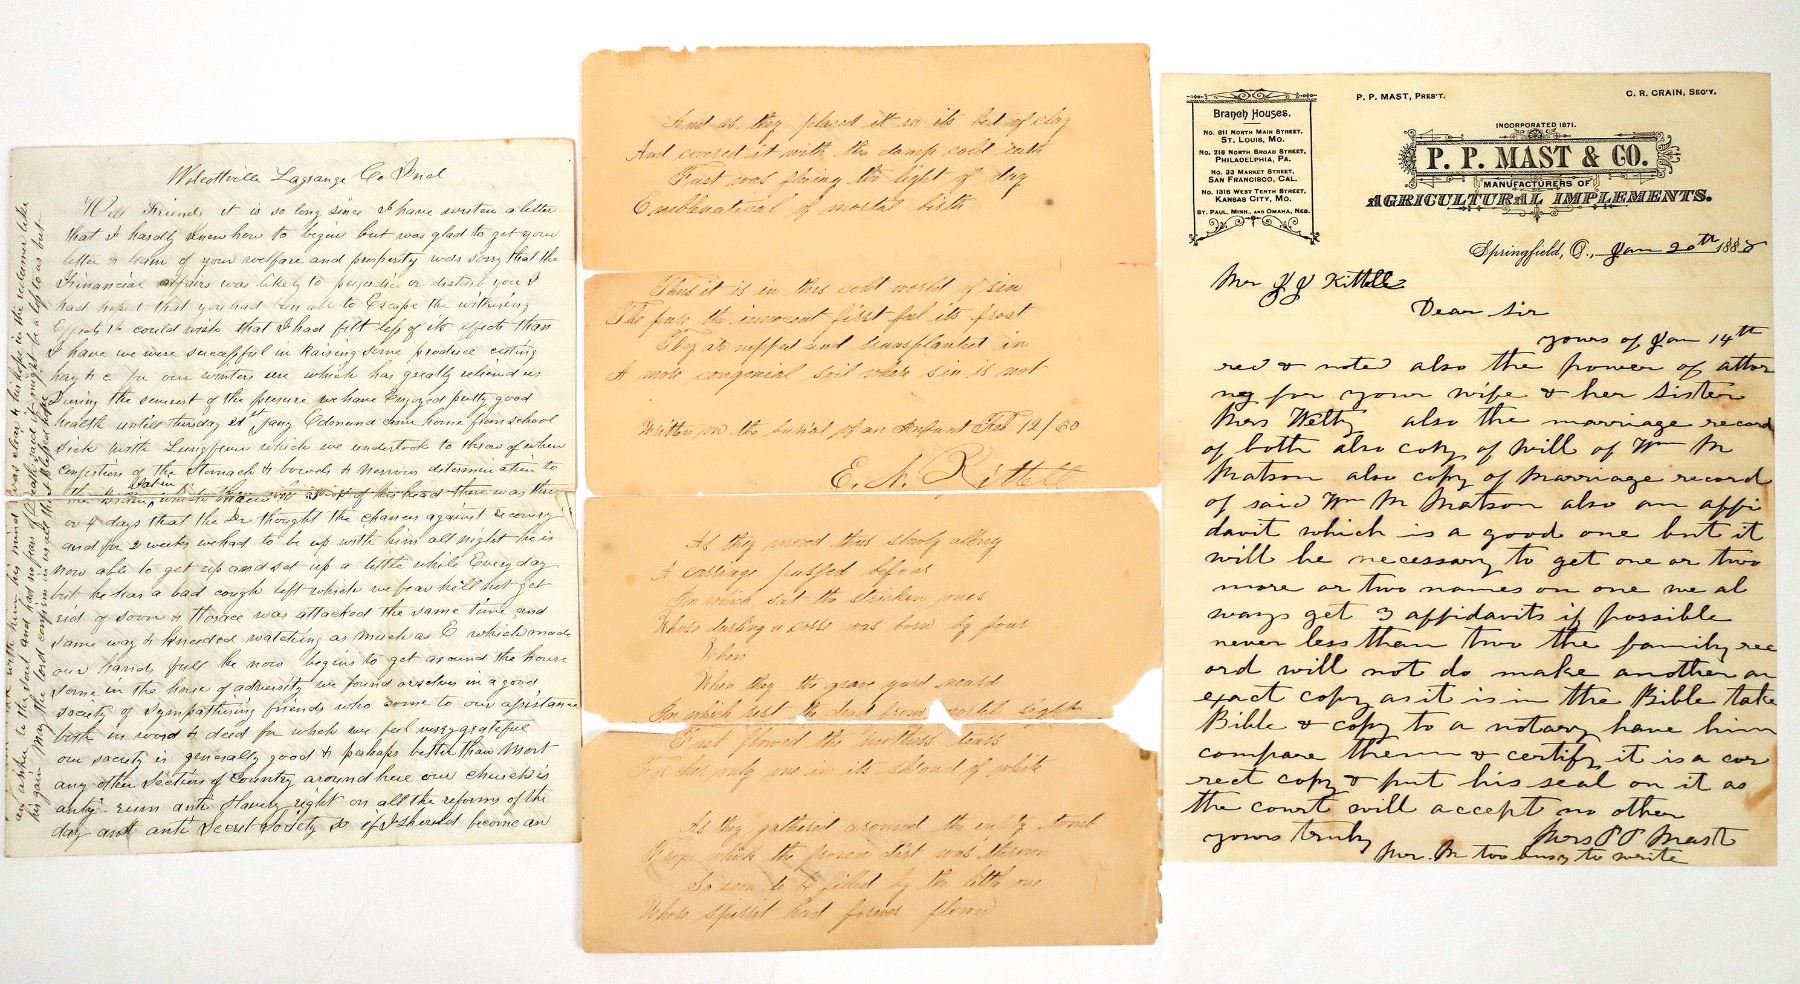 Wolcottville Lagrange Co Ind
Well Friends it is so long since I have written a letter
that I hardly know how to begin but was glad to get your
letter & learn of your welfare and prosperity was sorry that the
Financial affairs was likely to prejudice or disturb you I
had hoped that you had been able to Escape the withering
Effects I could wish that I had felt less of its effects than
I have we were successful in Raising some produce cutting
hay & c for our winters use which has greatly relieved us
During the severest of the pressure we have Enjoyed pretty good
health until thursday 21st Jany Edmund came home from school
sick with Lungfever which we undertook to throw of when
Congestion of the Stomach & bowels & Nervous determination to
the brain set in which of his head there was three
or 4 days that the Dr thought the chances against recovery
and for 2 weeks we had to be up with him all night he is
now able to get up and set up a little while Every day
but he has a bad cough left which we fear he'll not get
rid of soon & Horace was attacked the same time and
same way & kneeded watching as much as E which made
our hands full he now begins to get around the house
some in the hour of adversity we found ourselves in a good
society of Sympathising friends who come to our assistance
both in word & deed for which we feel very grateful
our society is generally good & perhaps better than most
any other Section of Country around here our church is
anti rum anti Slavery right on all the reforms of the
day and anti Secret Society so if I should become an
his mind was clear & his hope in the redeemer like
an anker to the soul and had no fears of Death and it might be a loss to us but
his gain May the lord confirm in us all that blessed hope
And as they placed it in its bed of clay
And covered it with the damp cold earth
Frost was flying the light of day
Emblematical of mortal birth
Thus it is in this cold world of sin
The pure the innocent first feel its frost
They at nipped and transplanted in
A more congenial soil where sin is not
Written on the burial of an Infant Feb 12/60
E. N. Kittell
As they moved thus slowly along
A carriage passed before
In which sat the stricken ones
Whose darling a corse was born by four
When
When they the grave yard neard
In which rest the dead from mortal sight
Fast flowed the mothers tears
For her only one in its shroud of white
As they gathered around the empty tomb
From which the frozen dirt was thrown
So soon to be filled by the little one
Whose spirit had forever flown
Branch Houses.
No. 811 North Main Street,
St. Louis, Mo.
No. 216 North Broad Street,
Philadelphia, Pa.
No. 33 Market Street,
San Francisco, Cal.
No. 1316 West Tenth Street,
Kansas City, Mo.
St. Paul, Minn., and Omaha, Neb.
P. P. MAST, Pres't.
C. R. CRAIN, Sec'y.
INCORPORATED 1871.
P. P. MAST & CO.
MANUFACTURERS OF
AGRICULTURAL IMPLEMENTS.
Springfield, O., Jan 20th 1888
Mr J J Kittell
Dear Sir
yours of Jan 14th
recd & noted also the power of attor
ny for your wife & her Sister
Mrs Welty also the marriage record
of both also copy of Will of Wm M
Matson also copy of Marriage record
of said Wm M Matson also an affi
davit which is a good one but it
will be necessary to get one or two
more or two names on one we al
ways get 3 affidavits if possible
never less than two the family rec
ord will not do make another an
exact copy as it is in the Bible take
Bible & copy to a notary have him
compare them & certify it is a cor
rect copy & put his seal on it as
the court will accept no other
yours truly Mrs P P Mast
Mr. M too busy to write